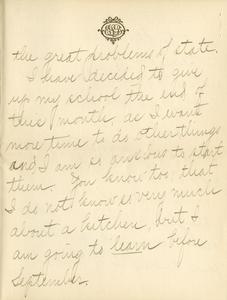 the great problems of state.
I have decided to give
up my school the end of
this month, as I want
more time to do other things
and I am so anxious to start
them. You know too, that
I do not know so very much
about a kitchen, but I
am going to learn before
September.